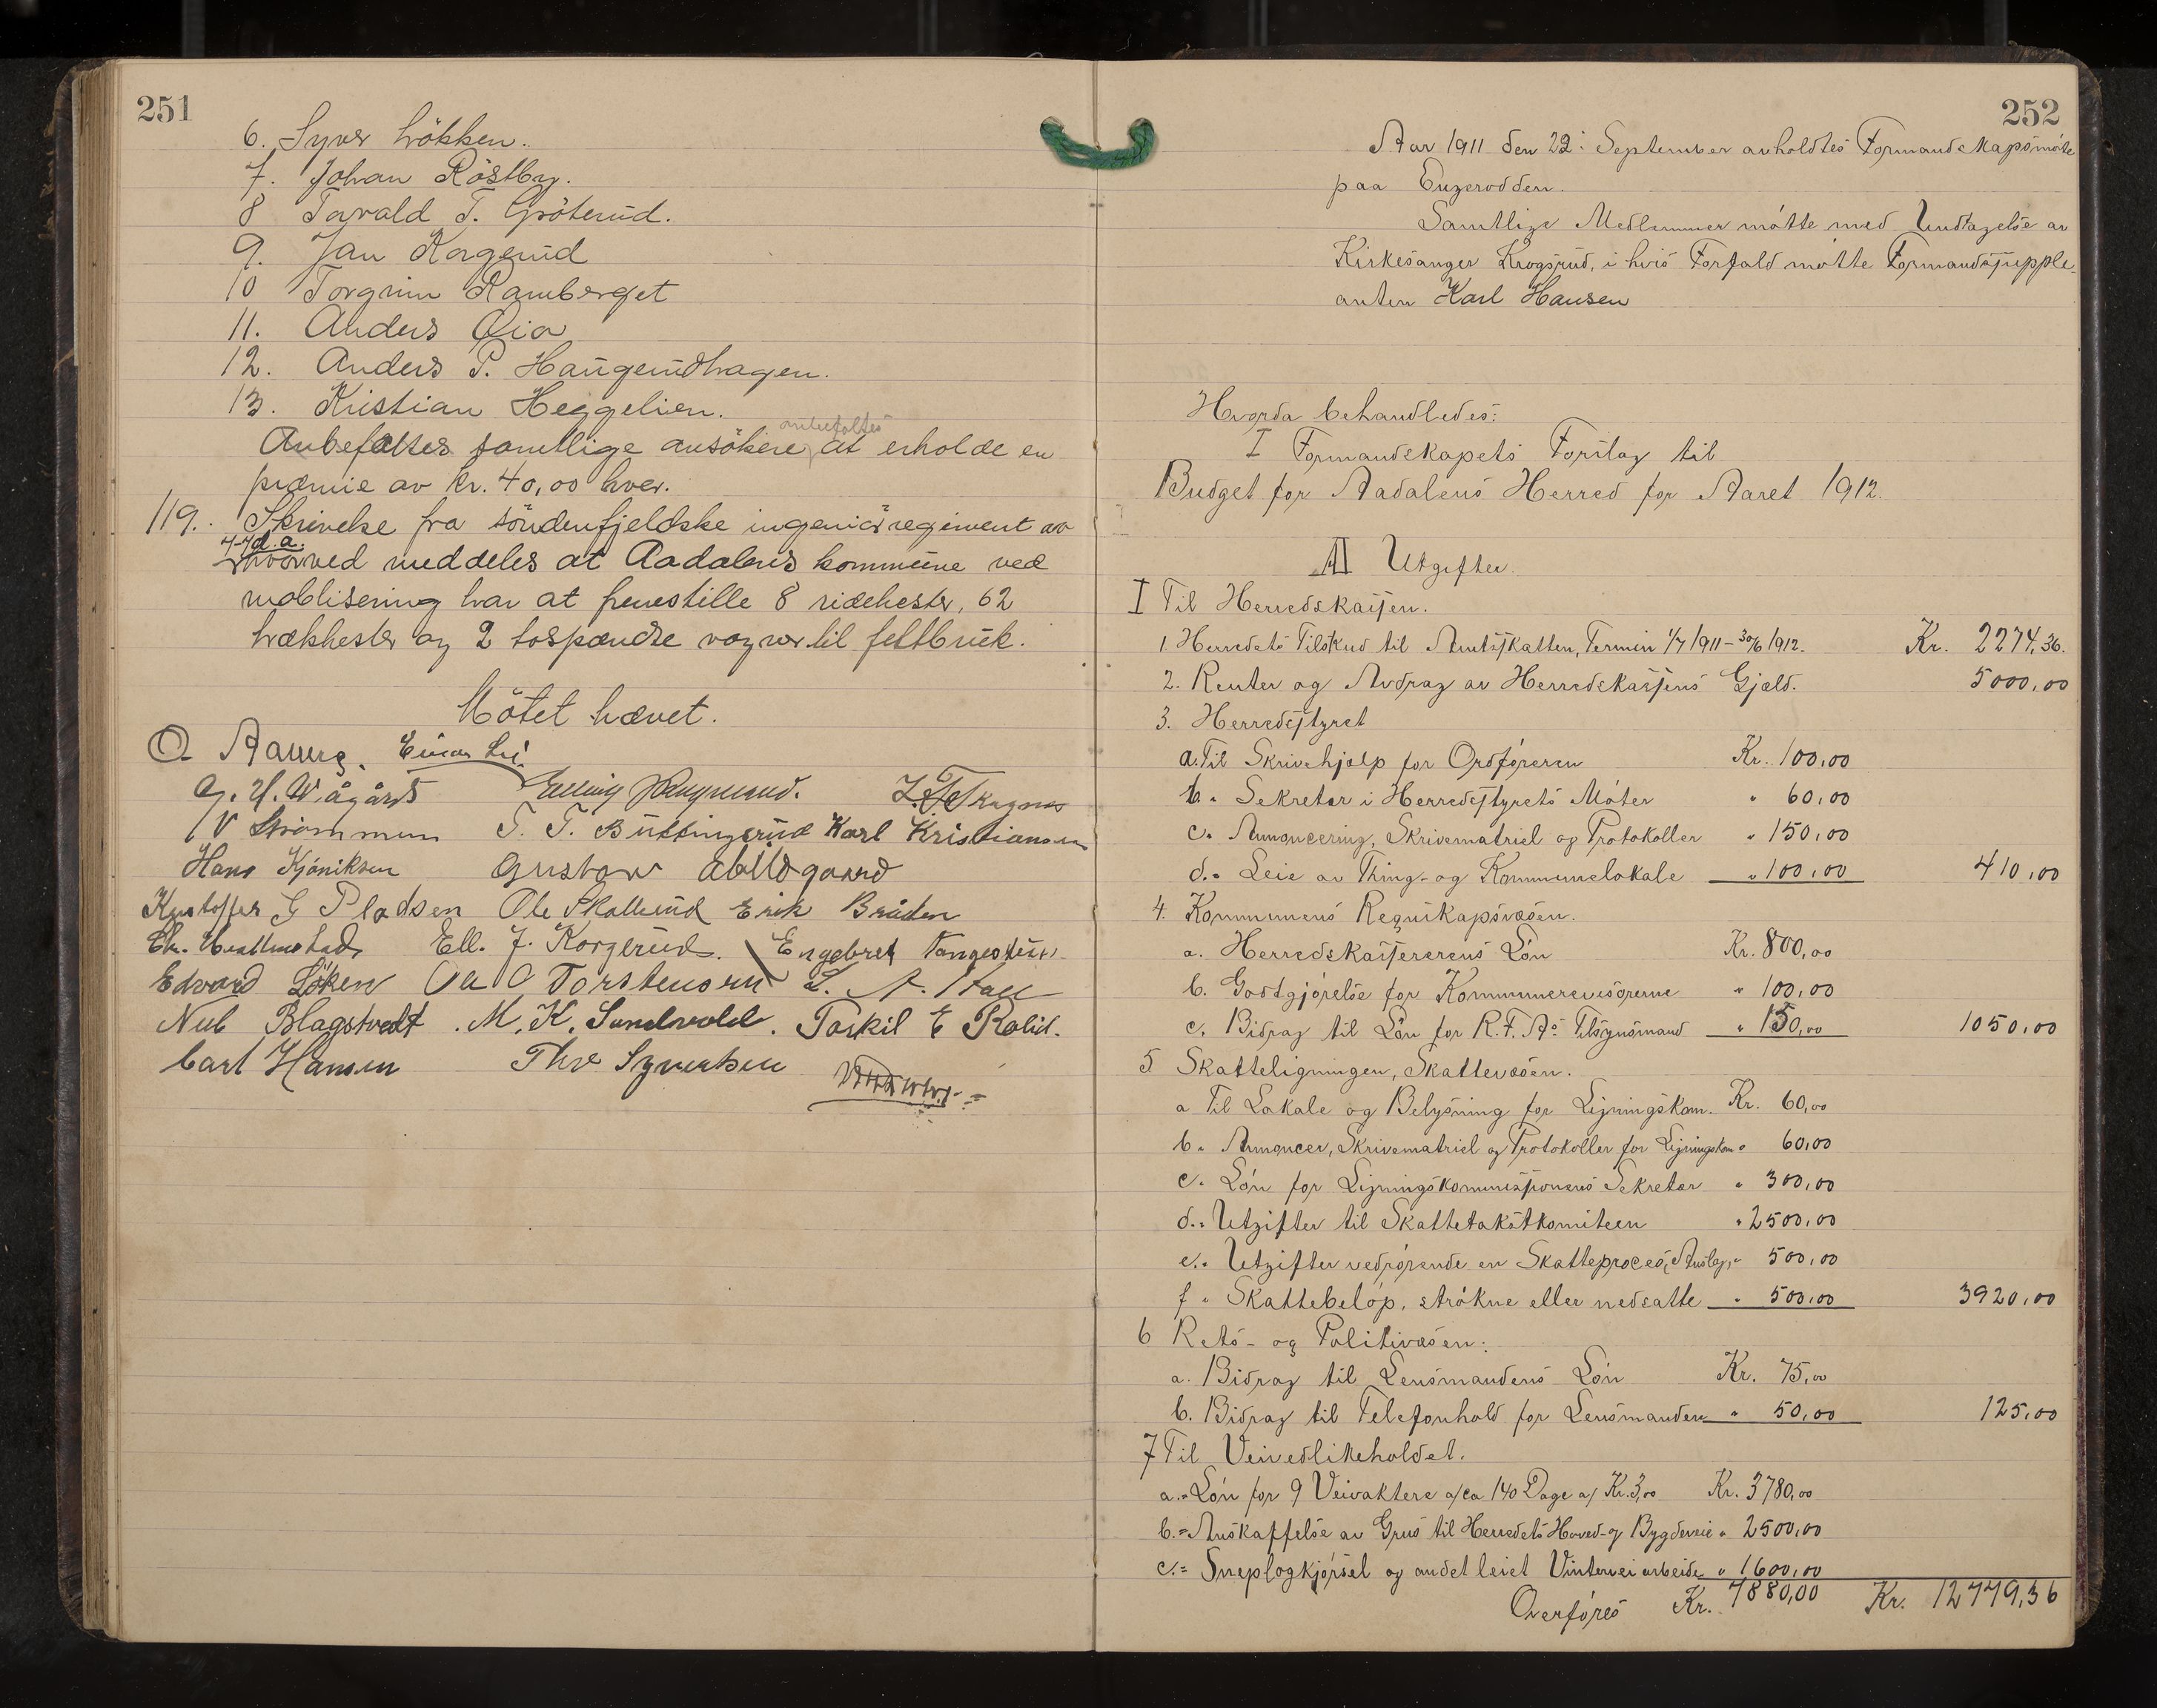 251
6. Syver Løkken.
7. Johan Röstby.
8 Torvald T. Gröterud.
9. Jan Korgerud
10 Torgrim Ramberget
11. Anders Øia
12. Anders P. Haugerudhagen.
13. Kristian Heggelien.
anbefaltes
Anbefaltes samtlige ansökere at erholde en
præmie av kr. 40,00 hver.
119. Skrivelse fra söndenfjeldske ingeniörregiment av
4-7 d.a.
hvorved meddeles at Aadalens kommune ved
moblisering har at fremstille 8 ridehester, 62
trækhester og 2 tospændte vogner til feltbruk.
Mötet hævet.
O Aaberg. Einar Lie.
G. H. Wågård Elling Rangmoud.
Strømmen T. T. Buttingsrud Karl Kristiansen
Hans Kjöniksen Gustav Abildgaard
Kristoffer G Pladsen Ole Skollerud Erik Bråten
Ell. J. Korgerud. Engebret Tangestuen
Edvard Löken Ole O Torstensen
Nub Blagstvedt. M. K. Sandvold. Torkil E Rolid.
Carl Hansen Thv Syvertsen
252
Aar 1911 den 22: September avholdtes Formandskapsmöte
paa Engerodden.
Samtlige Medlemmer mötte med Undtagelse av
Kirkesanger Krogsrud, i hvis Forfald mötte Formandssupple-
anten Karl Hansen
Hvorda behandledes:
I Formandskapets Forslag til
Budget for Aadalens Herred for Aaret 1912.
A Utgifter.
I Til Herredskassen.
1. Herredets Tilskud til Amtsskatten, Termin 1/7 1911 - 30/6 1912. Kr. 2274,36.
2. Renter og Avdrag av Herredskassens Gjæld. 5000,00
3. Herredsstyret
a. Til Skrivehjælp for Ordföreren Kr. 100,00
b. " Sekretær i Herredsstyrets Möter " 60,00
c. " Annoncering, Skrivematriel og Protokoller " 150,00
d. " Leie av Thing- og Kommunelokale " 100,00 410,00
4. Kommunens Regnskapsvæsen.
a. Herredskassererens Lön Kr. 800,00
b. Godtgjörelse for Kommunerevisorerne " 100,00
c. Bidrag til Lön for R.F.A's Tilsynsmand " 150,00 1050,00
5 Skatteligningen, Skattevæsen.
a Til Lokale og Belysning for Ligningskom. Kr. 60,00
b. " Annoncer, Skrivematriel og Protokoller for Ligningskom " 60,00
c. " Lön for Ligningskommissionens Sekretær " 300,00
d. " Utgifter til Skattetakstkomiteen " 2500,00
e. " Utgifter vedrörende en Skatteproces, Anslag, " 500,00
f " Skattebelöp, strökne eller nedsatte " 500,00 3920,00
6 Rets- og Politivæsen:
a. Bidrag til Lensmandens Lön Kr. 75,00
b. Bidrag til Telefonhold for Lensmanden " 50,00 125,00
7 Til Veivedlikeholdet.
a. " Lön for 9 Veivaktere a/ ca 140 Dage a/ Kr. 3,00 Kr. 3780,00
b. " Anskaffelse av Grus til Herredets Hoved- og Bygdeveie " 2500,00
c. " Sneplogkjörsel og andet leiet Vinterveiarbeide " 1600,00
Overföres Kr. 7880,00 Kr. 12779,36